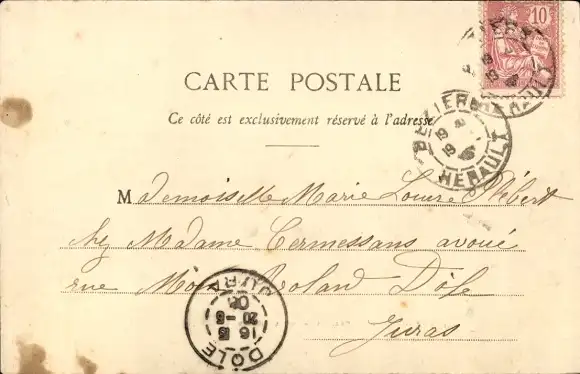 10
CARTE POSTALE
Ce côté est exclusivement réservé à l'adresse
BEZIERS HERAULT
Mademoiselle Marie Louise Hébert
chez Madame Cermessans avoué
rue Roland Dôle
Juras
DOLE JURA
16
20 -8
05